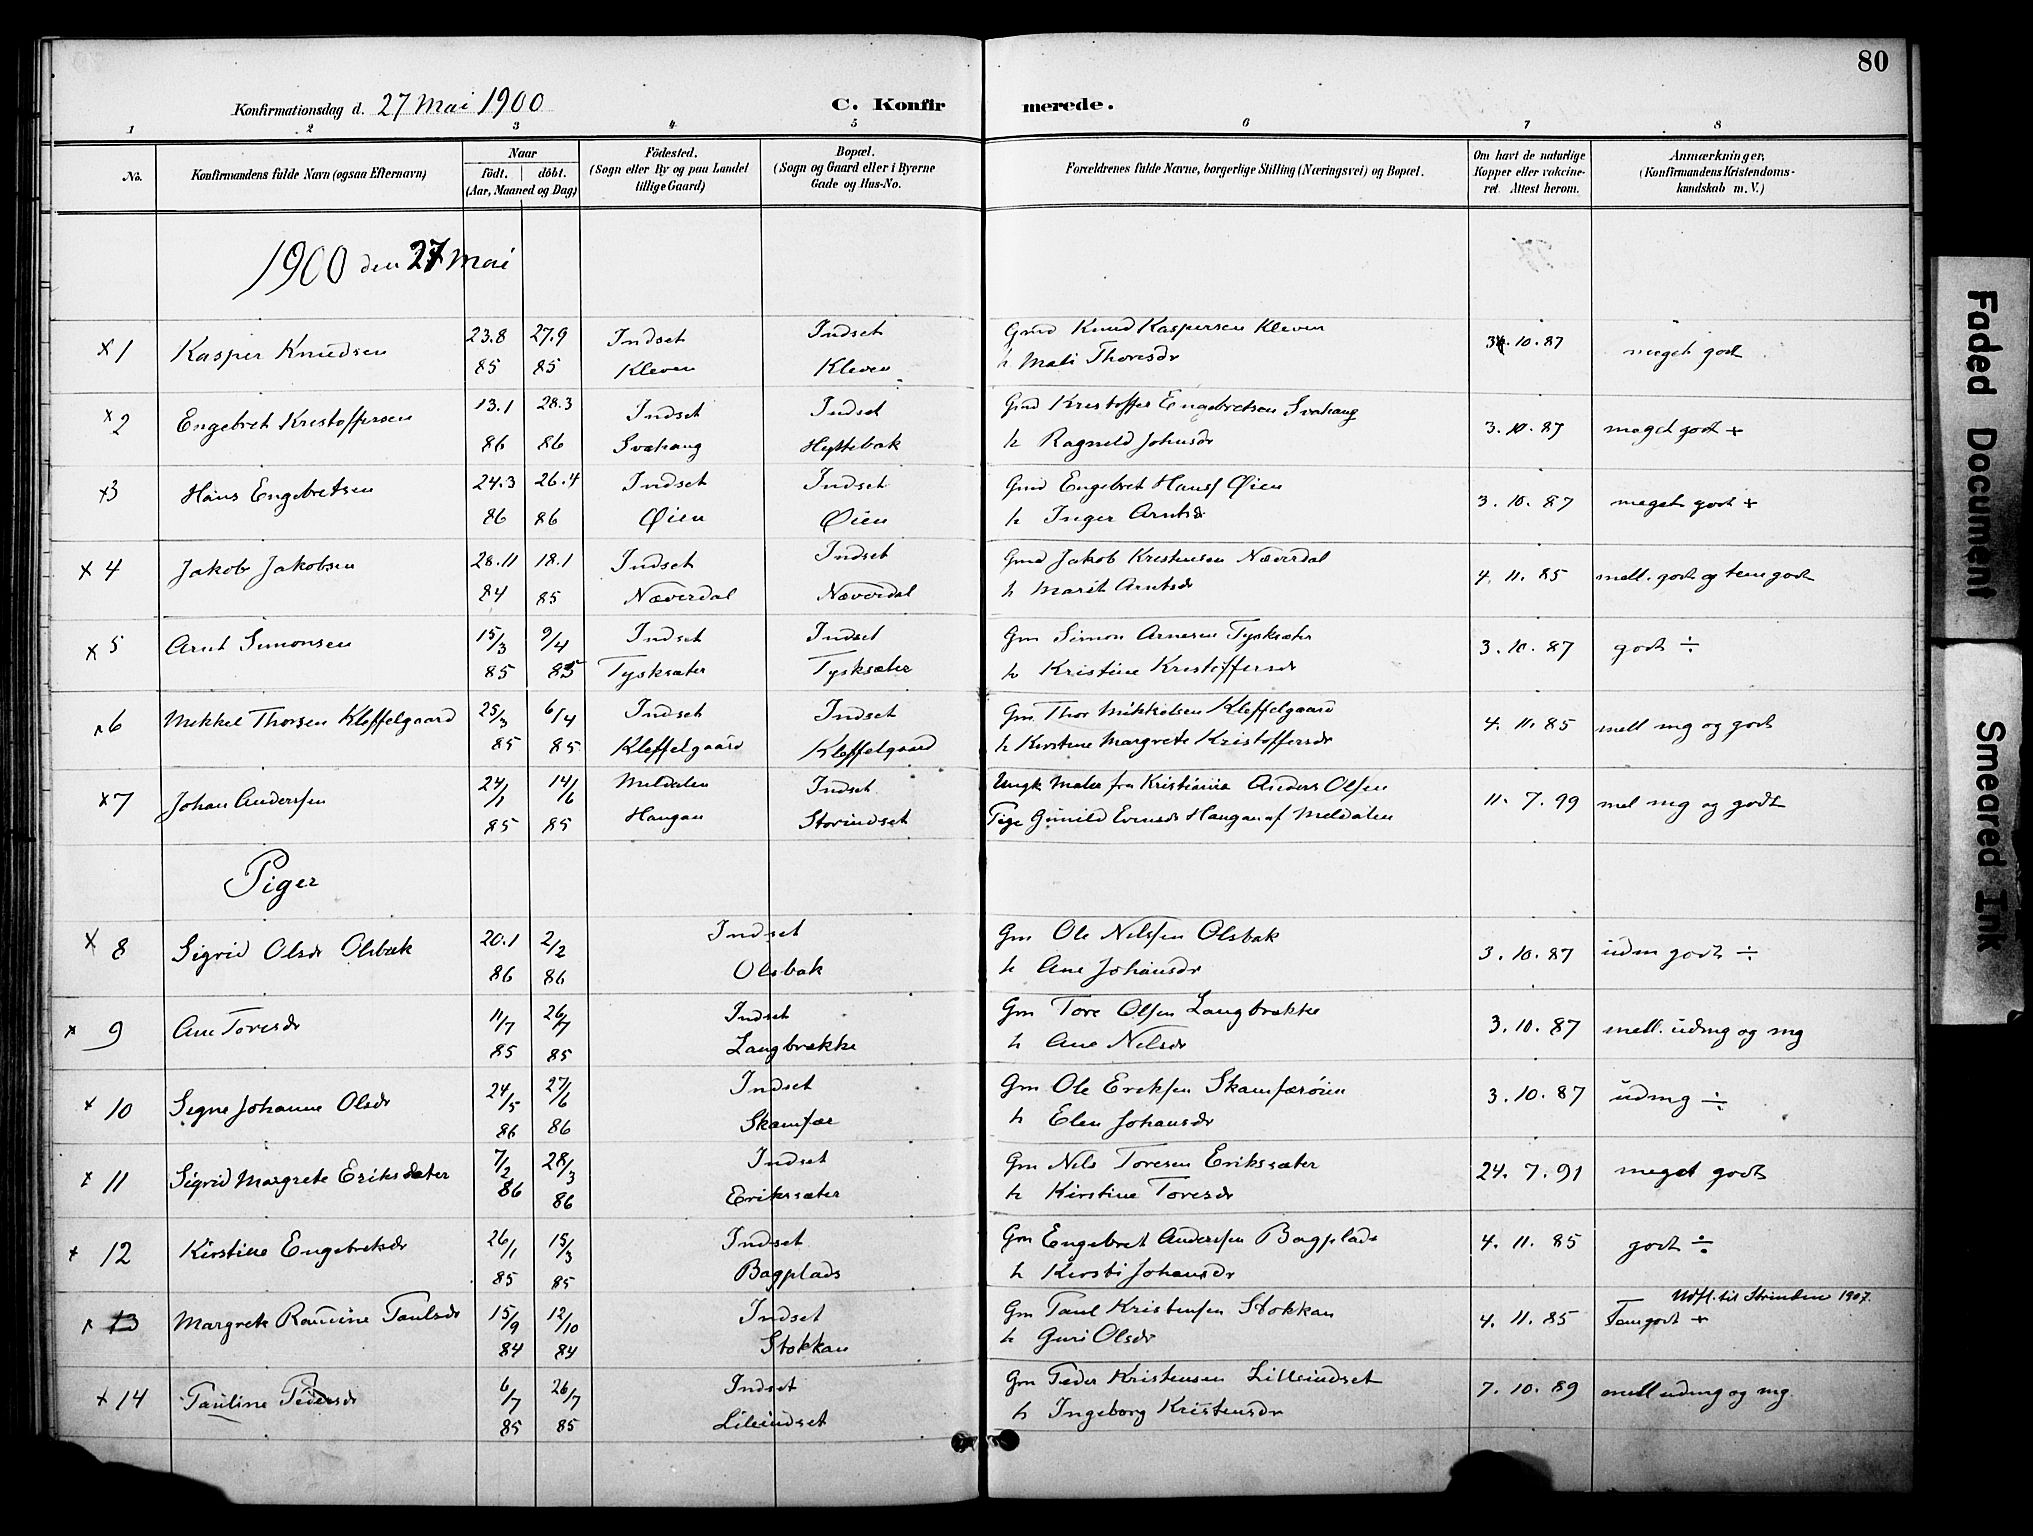 80
Konfirmationsdag d. 27 Mai 1900
C. Konfirmerede.
1 2 3 4 5 6 7 8
No.
Konfirmandens fulde Navn (ogsaa Efternavn)
Naar
födt. döbt.
(Aar, Maaned og Dag)
Födested.
(Sogn eller By og paa Landet
tillige Gaard)
Bopæl.
(Sogn og Gaard eller i Byerne
Gade og Hus-No.
Forældrenes fulde Navne, borgerlige Stilling (Næringsvei) og Bopæl.
Om havt de naturlige
Kopper eller vakcine-
ret. Attest herom.
Anmærkninger.
(Konfirmandens Kristendoms-
kundskab m. V.)
1900 den 27 Mai
x 1 Kasper Knudsen 23.8 27.9 Indset Indset Gmd Knud Kaspersen Kleven 3.10.87 meget godt
85 85 Kleven Kleven h Mali Thoresdr
x 2 Engebret Kristoffersen 13.1 28.3 Indset Indset Gmd Kristoffer Engebretsen Svahaug 3.10.87 meget godt +
86 86 Svahaug Hyttebak h Ragnild Johnsdr
x 3 Hans Engebretsen 24.3 26.4 Indset Indset Gmd Engebret Hansf Øien 3.10.87 meget godt +
86 86 Øien Øien h Inger Arntsdr
x 4 Jakob Jakobsen 28.11 18.1 Indset Indset Gmd Jakob Kristensen Næverdal 4.11.85 mell. godt og temgodt
84 85 Næverdal Næverdal h Marit Arntsdr
x 5 Arnt Simonsen 15/3 9/4 Indset Indset Gm Simon Arnesen Tysksæter 3.10.87 godt ÷
85 85 Tysksæter Tysksæter h Kristine Kristoffersdr
x 6 Mikkel Thorsen Kleffelgaard 25/3 6/4 Indset Indset Gm Thor Mikkelsen Kleffelgaard 4.11.85 mell mg og godt
85 85 Kleffelgaard Kleffelgaard h Kirstine Margrete Kristoffersdr
x 7 Johan Andersen 24/1 14/6 Meldalen Indset Ungk Maler fra Kristiania Anders Olsen 11.7.99 mel mg og godt
85 85 Haugan Storindset Pige Gunild Evensdr Haugan af Meldalen
Piger
x 8 Sigrid Olsdr Olsbak 20.1 2/2 Indset Gm Ole Nilssen Olsbak 3.10.87 udm godt ÷
86 86 Olsbak h Ane Johansdr
x 9 Ane Toresdr 11/7 26/7 Indset Gm Tore Olsen Langbrække 3.10.87 mell. udmg og mg
85 85 Langbrække h Ane Nilsdr
x 10 Segne Johanne Olsdr 24/5 27/6 Indset Gm Ole Eriksen Skamfærøien 3.10.87 udmg ÷
86 86 Skamfær h Elen Johansdr
x 11 Sigrid Margrete Eriksæter 7/2 28/3 Indset Gm Nils Toresen Erikssæter 24.7.91 meget godt
86 86 Erikssæter h Kirstine Toresdr
x 12 Kirstine Engebretsdr 26/1 15/3 Indset Gm Engebret Andersen Bagplads 4.11.85 godt ÷
85 85 Bagplads h Kirsti Johansdr
x 13 Margrete Paulsdr 15/9 12/10 Indset Gm Paul Kristensen Stokkan 4.11.85 Temgodt + Udfl. til Strinden 1907.
84 84 Stokkan h Guri Olsdr
x 14 Pauline Pedersdr 6/7 26/7 Indset Gm Peder Kristensen Lilleindset 7.10.89 mell udmg og mg.
85 85 Lileindset h Ingeborg Kristensdr
Faded Document
Smeared Ink